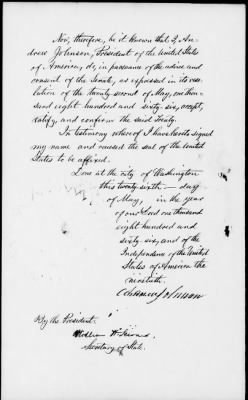 Now, therefore, be it known that I, An-
drew Johnson, President of the United States
of America, do, in pursuance of the advice and
consent of the Senate, as expressed in its reso-
lution of the twenty second of May, one thou-
sand eight hundred and sixty-six, accept,
ratify, and confirm the said Treaty.
In testimony whereof I have hereto signed
my name and caused the seal of the United
States to be affixed.
Done at the city of Washington
this twenty-sixth day
of May, in the year
of our Lord one thousand
eight hundred and
sixty-six, and of the
Independence of the United
States of America the
ninetieth.
Andrew Johnson
By the President:
William H. Seward
Secretary of State.